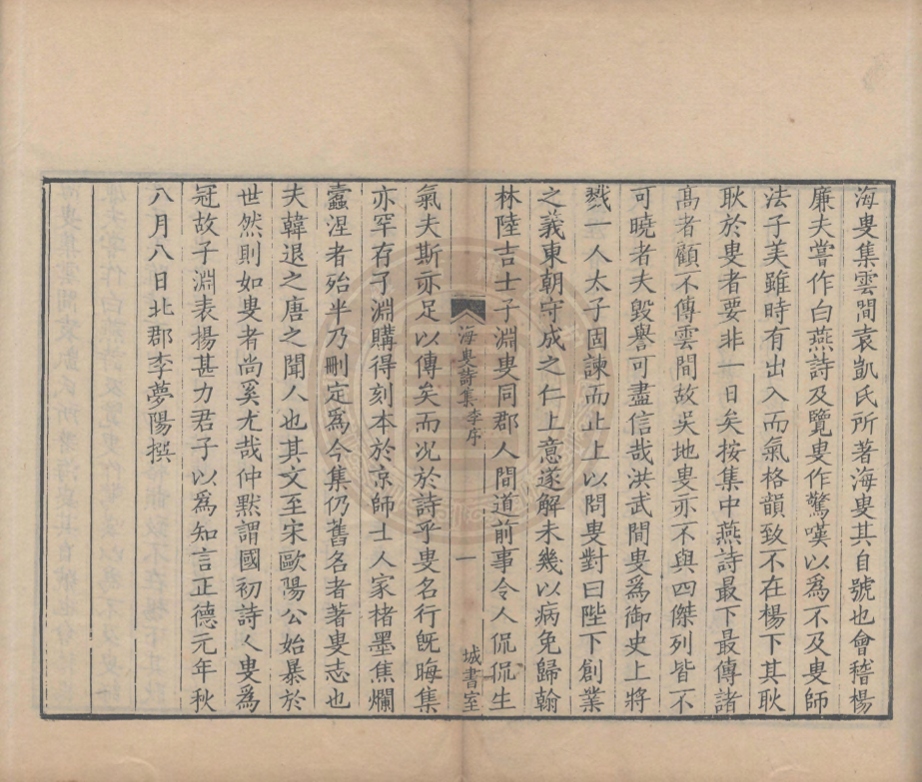 海叟集雲間袁凱氏所著海叟其自號也會稽楊
廉夫嘗作白燕詩及覽叟作驚嘆以為不及叟師
法子美雖時有出入而氣格韻致不在楊下其耿
耿於叟者要非一日矣按集中燕詩最下最傳諸
髙者顧不傳雲間故吳地叟亦不與四傑列皆不
可曉者夫毀譽可盡信哉洪武間叟爲御史上將
戮一人太子固諫而止上以問叟對曰陛下創業
之義東朝守成之仁上意遂解未幾以病免歸翰
林陸吉士子淵叟同郡人間道前事令人侃侃生
海叟詩集李序
一
城書室
氣夫斯亦足以傳矣而况於詩乎叟名行旣晦集
亦罕存子淵購得刻本於京師士人家楮墨焦爛
蠹涅者殆半乃刪定爲今集仍舊名者著叟志也
夫韓退之唐之聞人也其文至宋歐陽公始暴於
世然則如叟者尚奚尤哉仲默謂國初詩人叟爲
冠故子淵表揚甚力君子以爲知言正德元年秋
八月八日北郡李夢陽撰